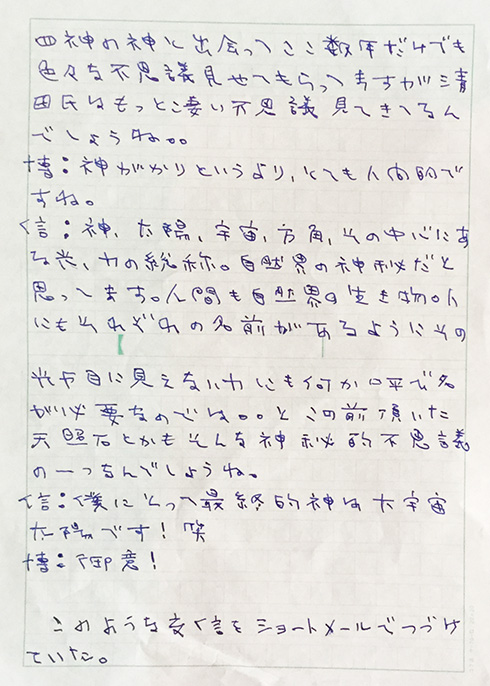 四神の神に出会ってここ数年だけでも
色々な不思議見せてもらってますが清
田氏はもっと凄い不思議見てきてるん
でしょうね。。
博:神がかりというより、とても人間的で
すね。
信:神、太陽、宇宙、方角、その中心にあ
る光、力の総称。自然界の神秘だと
思ってます。人間も自然界の生き物。人
にもそれぞれの名前があるようにその
光や目に見えない力にも何か呼び名
が必要なのでは。。とこの前頂いた
天照石とかもそんな神秘的不思議
の一つなんでしょうね。
信:僕にとって最終的神は大宇宙
太陽です!笑
博:御意!
このような交信をショートメールでつづけ
ていた。